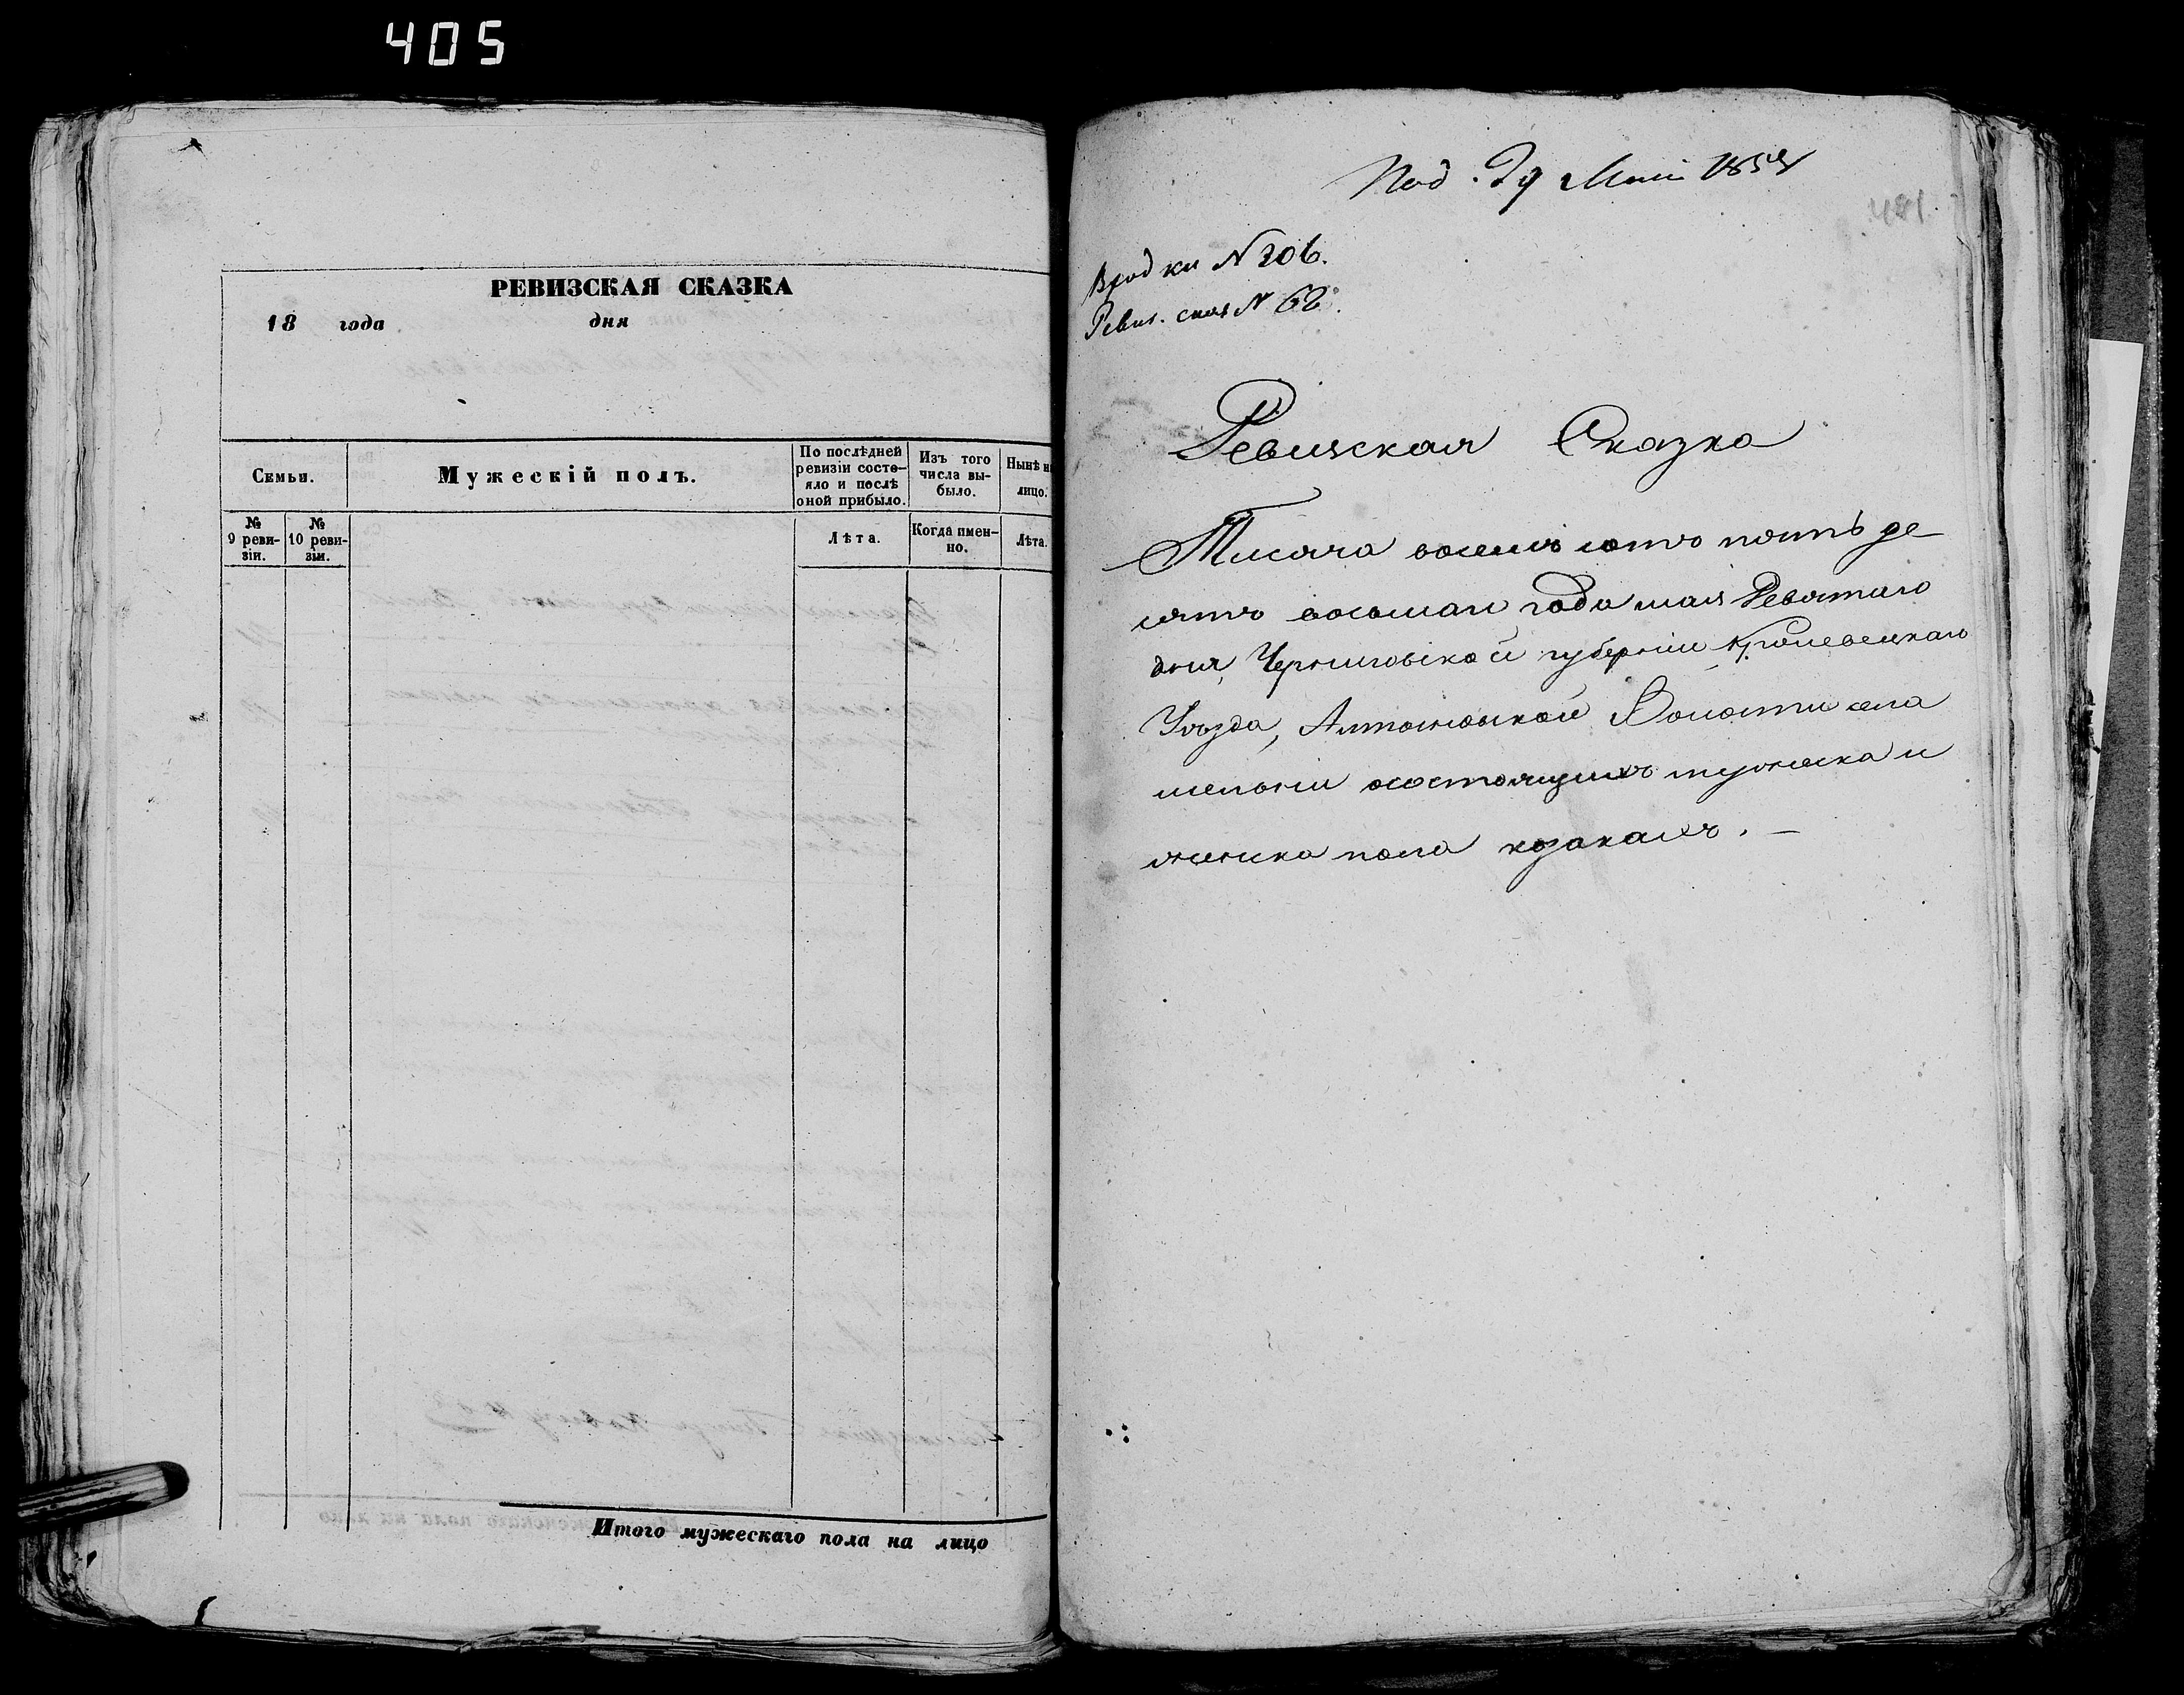 405
РЕВИЗСКАЯ СКАЗКА
18 года дня
Семьи.
Мужескій полъ.
По послѣдней
ревизіи состо-
яло и послѣ
оной прибыло.
Изъ того
числа вы-
было.
Нынѣ н
лицо.
№
9 реви-
зіи.
№
10 реви-
зіи.
Лѣта.
Когда имен-
но.
Лѣта.
Итого мужескаго пола на лицо
Под. 29 Маія 185
481.
N 206.
Ревиз. сказ N 62.
Ревизская Сказка
Тысяча восемь сотъ пять де
сятъ восьмаго года мая Девятаго
дня, Черниговской губерніи Кролевецкаго
Уѣзда, Алтыновской Волости села
состоящихъ мужеска и
женска пола козакахъ. —